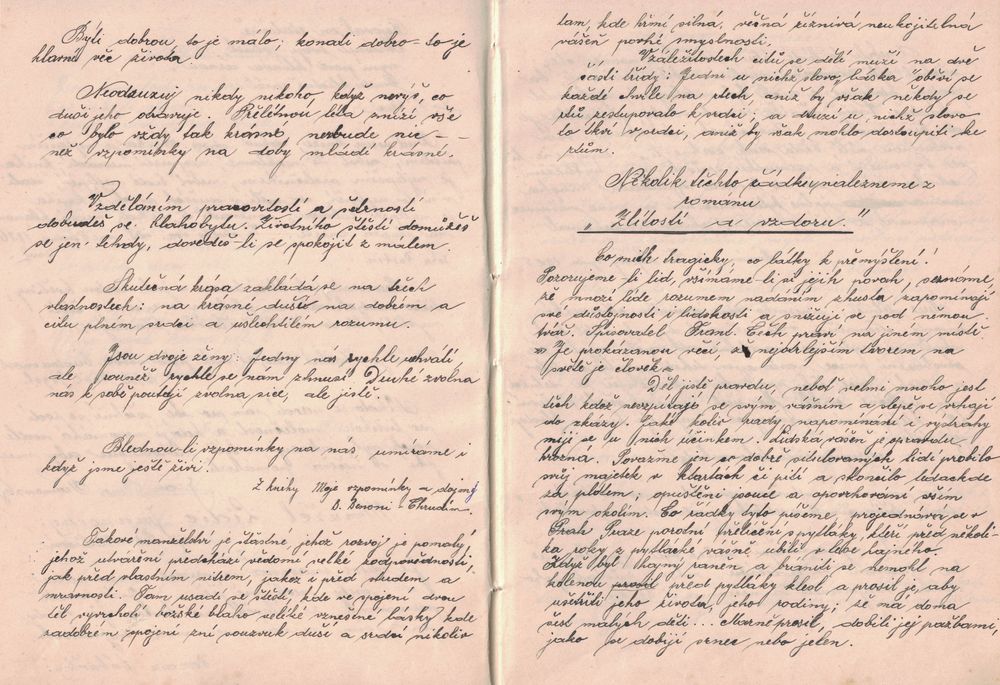 Býti dobrou, to je málo; konati dobro - to je
hlavní věc života.
Neodsuzuj nikdy nikoho, když nevíš, co
duši jeho otravuje. Přeletnou léta zmizí vše
co bylo vždy tak krásné, nezbude nic -
než vzpomínky na doby mládí krásné.
Vzděláním pracovitostí a šetrností
dobudeš se blahobytu. Životního štěstí domůžeš
se jen tehdy, dovedeš-li se spokojit z málem.
Skutečná krása zakládá se na těch
vlastnostech: na krásné duši na dobrém a
citu plném srdci a ušlechtilém rozumu.
Jsou dvoje ženy: Jedny nás rychle uhvátí
ale rovněž rychle se nám zhnusí Druhé zvolna
nás k sobě poutají zvolna sice, ale jistě.
Blednou-li vzpomínky na nás umíráme i
když jsme ještě živi.
Z knihy Moje vzpomínky a dojmy
B. Benoni - Chrudim.
Takové manželství je šťastné jehož rozvoj je pomalý,
jehož utváření předchází vědomí velké zodpovědnosti,
jak před vlastním nitrem, jakož i před studem a
mravností. Tam usadí se štěstí, kde ve spojení dvou
těl vyvrcholí božské blaho veliké vznešené lásky kde
zadobřem spojení zní souzvuk duší a srdcí nikoliv
tam, kde hřmí silná, věčná žíznivá neukojitelná
vášeň pouhé smyslnosti.
V záležitostech citů se dělí muži na dvě
části třídy: Jedni u nichž slovo láska oběví se
každé chvíle na rtech, aniž by však někdy se
rtů sestupovalo k srdci; a druzí u nichž slovo
to tkví v srdci, aniž by však mohlo dostoupiti ke
rtům.
Několik těchto řádků nalezneme z
románu
„Zlitosti a vzdoru."
Co mích tragicky, co látky k přemýšlení!
Pozorujeme-li lid, všímáme-li si jejich povah, seznáme,
že mnozí lidé rozumem nadaním zhusta zapomínají
své důstojnosti i lidskosti a snižují se pod němou
tvář. Spisovatel Frant. Čech praví na jiném místě
„Je prokázanou věcí, že nejdrzejším tvorem na
světě je člověk"
Děl jistě pravdu, neboť velmi mnoho jest
těch kdož nevzpírají se svým vášním a slepě se vrhají
do zkázy. Jako koliv rady, napomínání i výstrahy
míjí se u nich účinkem. Lidská vášeň je opravdu
hrozná. Považme jen co dobře situovaných lidí probilo
svůj majetek v kartách či pití a skončilo ledaskde
za plotem; opuštěni pouze a opovrhováni vším
svým okolím. Co řádky tyto píšeme, projednává se v
Praze porotní přelíčení s pytláky, kteří před několi-
ka roky z pytlacké vášně ubili v lese hajného.
Když byl hajný raněn a brániti se nemohl na
kolenou před pytláky klekl a prosil je, aby
ušetřili jeho života, jeho rodiny; že má doma
šest malých dětí... Marně prosil, dobili jej pažbami,
jako se dobíjí srnec nebo jelen.